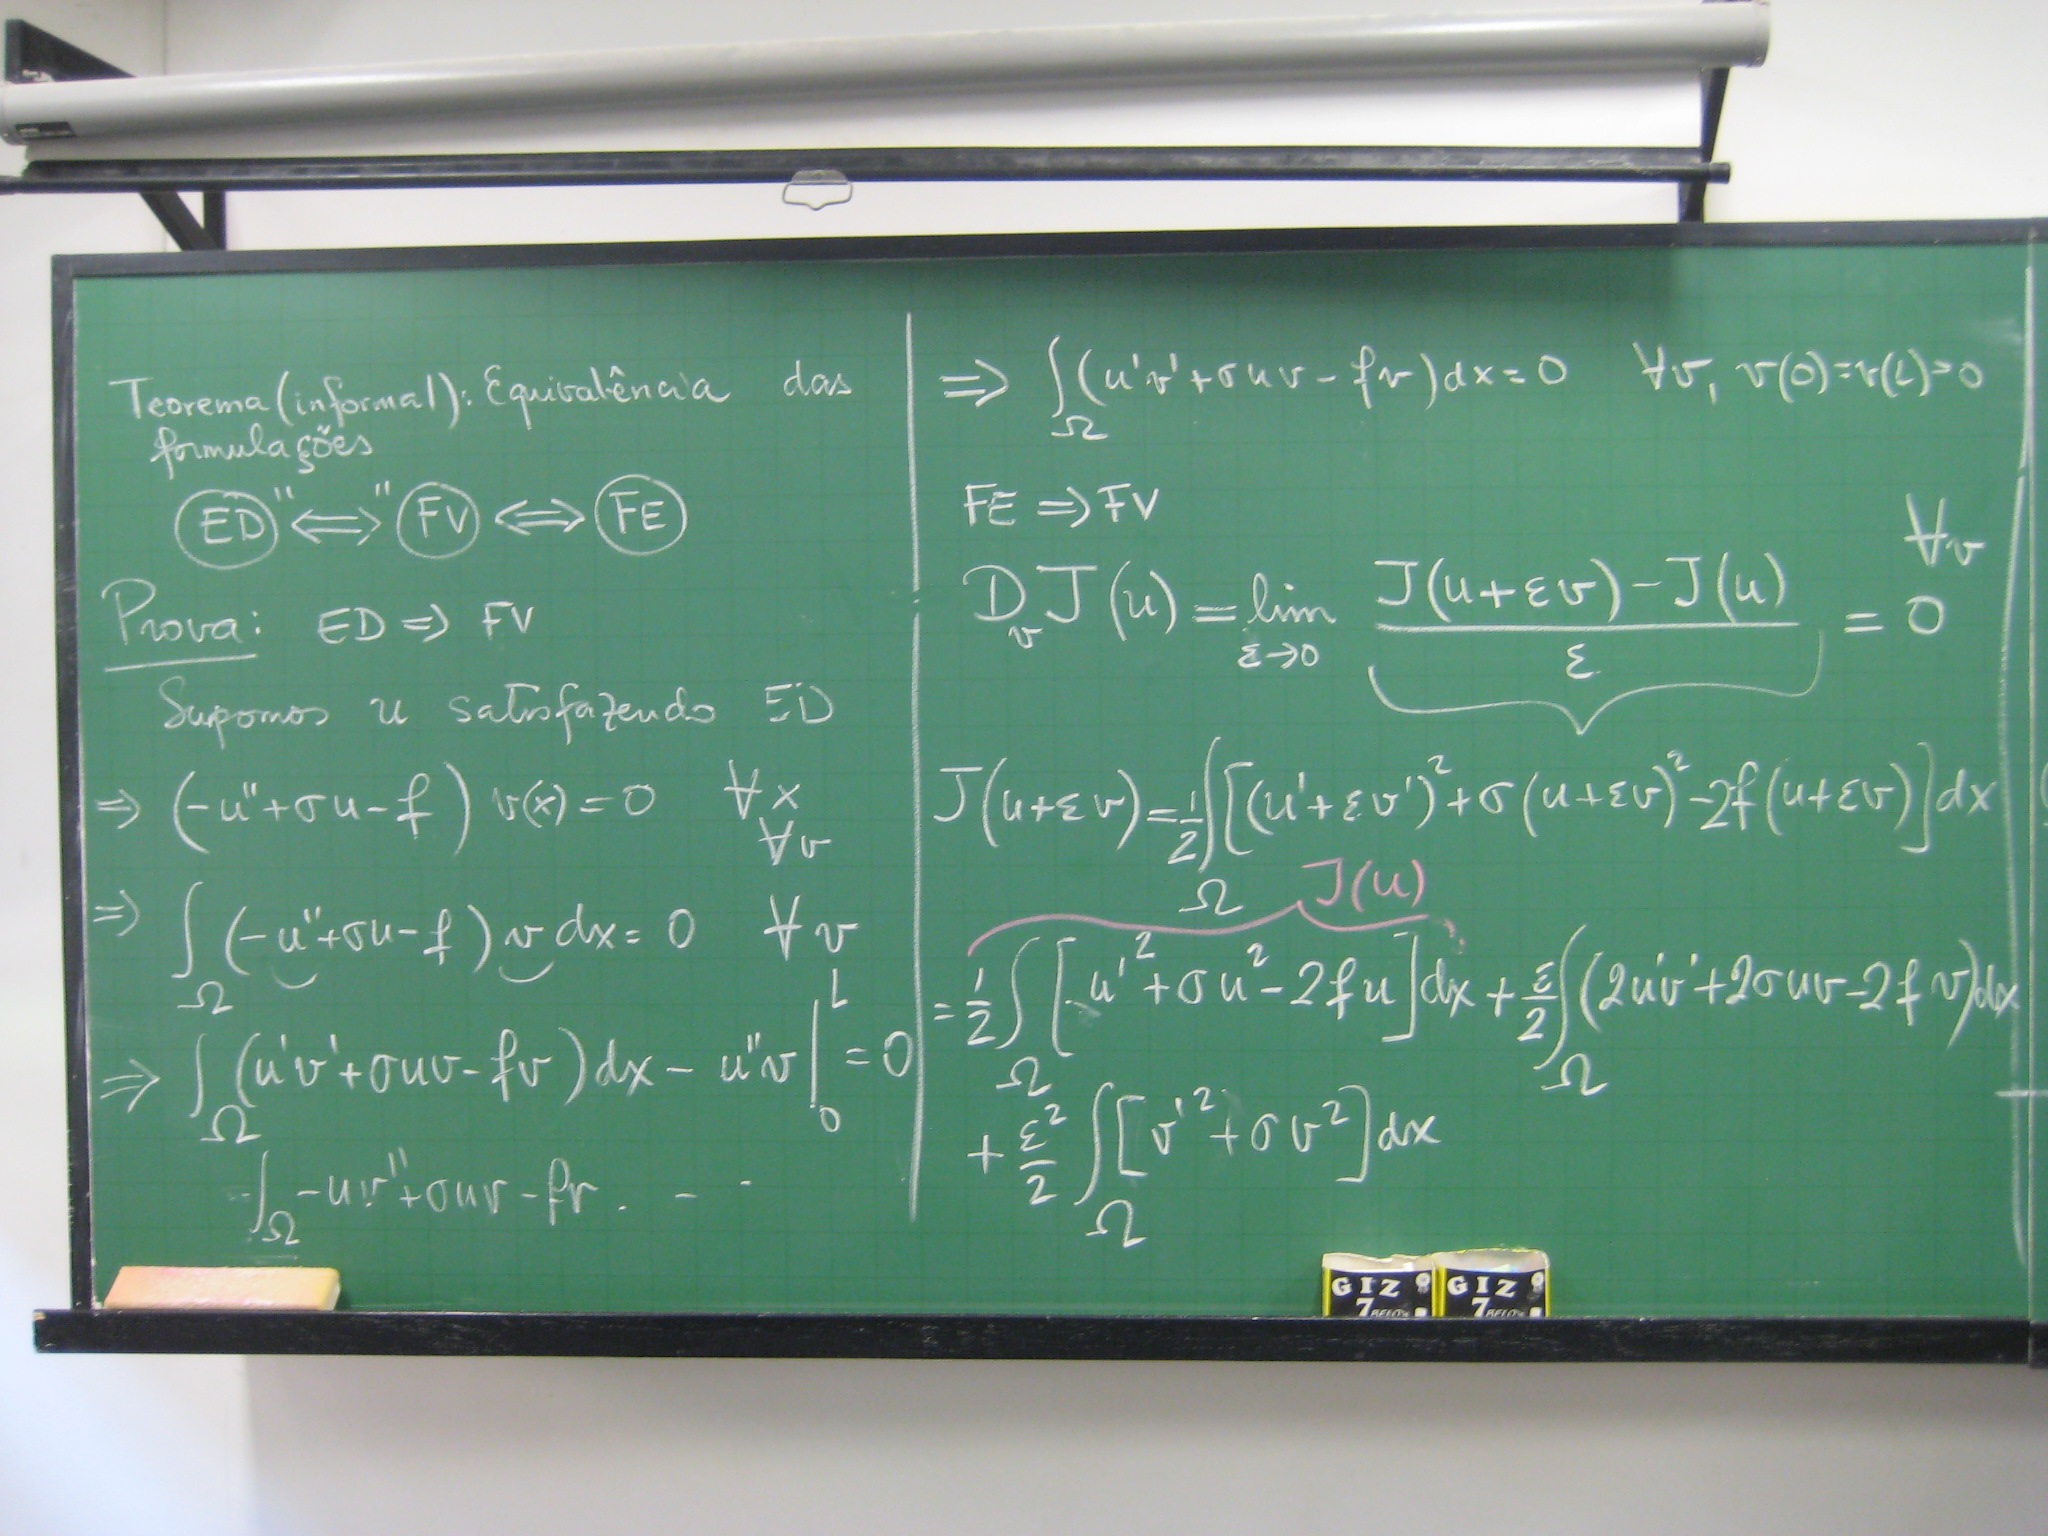 Teorema (informal): Equivalência das
formulações
ED "⇔" FV ⇔ FE
Prova: ED ⇒ FV
Supomos u satisfazendo ED
⇒ (-u''+σu-f) v(x) = 0 ∀x
∀v
⇒ ∫_Ω (-u''+σu-f) v dx = 0 ∀v
⇒ ∫_Ω (u'v'+σuv-fv) dx - u''v |_0^L = 0
∫_Ω -uv''+σuv-fv . - -
⇒ ∫_Ω (u'v'+σuv-fv) dx = 0 ∀v, v(0)=v(L)=0
FE ⇒ FV
∀v
D_v J(u) = lim_{ε→0} (J(u+εv)-J(u))/ε = 0
J(u+εv) = 1/2 ∫_Ω [(u'+εv')²+σ(u+εv)²-2f(u+εv)] dx
J(u)
= 1/2 ∫_Ω [u'²+σu²-2fu] dx + ε/2 ∫_Ω (2u'v'+2σuv-2fv) dx
+ ε²/2 ∫_Ω [v'²+σv²] dx
GIZ GIZ
7 BELO 7 BELO